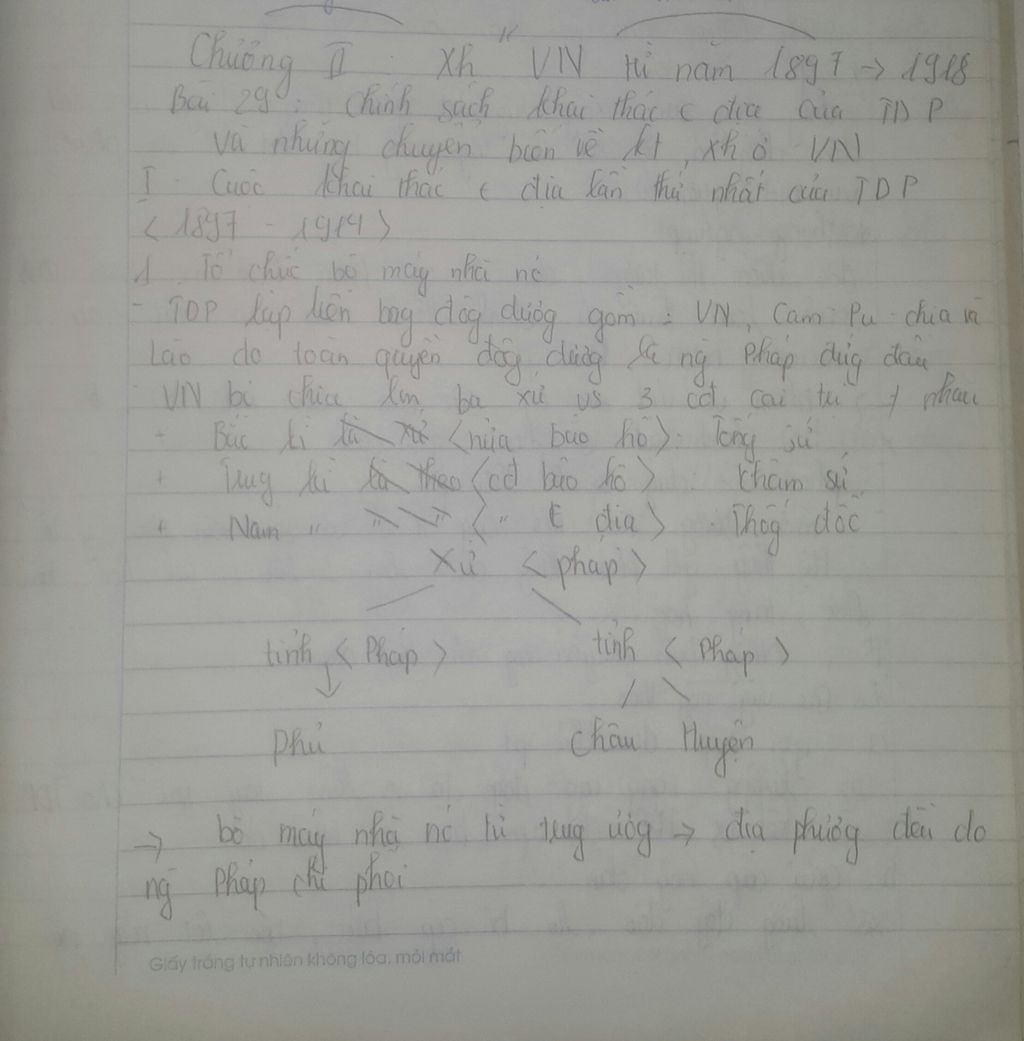 Chương II Xh VN từ năm 1897 → 1918
Bài 29 : Chính sách khai thác t địa của TDP
và những chuyển biến về kt, xh ở VN
I Cuộc khai thác t địa lần thứ nhất của TDP
< 1897 - 1914 >
1 Tổ chức bộ máy nhà nc
- TDP lập liên bag đôg dươg gồm : VN, Cam Pu chia và
Lào do toàn quyền đôg dươg là ng Pháp đứg đầu
VN bị chia làm ba xứ vs 3 cđ cai trị ≠ nhau
+ Bắc kì là xứ < nửa bảo hộ > : Tổng sứ
+ Trug kì là theo < cđ bảo hộ > : Khâm sứ
+ Nam " " " < " t địa > : Thốg đốc
Xứ < pháp >
tỉnh < Pháp > tỉnh < Pháp >
Phủ Châu Huyện
→ bộ máy nhà nc từ trug ươg → địa phươg đều do
ng Pháp chi phối
Giấy trắng tự nhiên không lóa, mỏi mắt